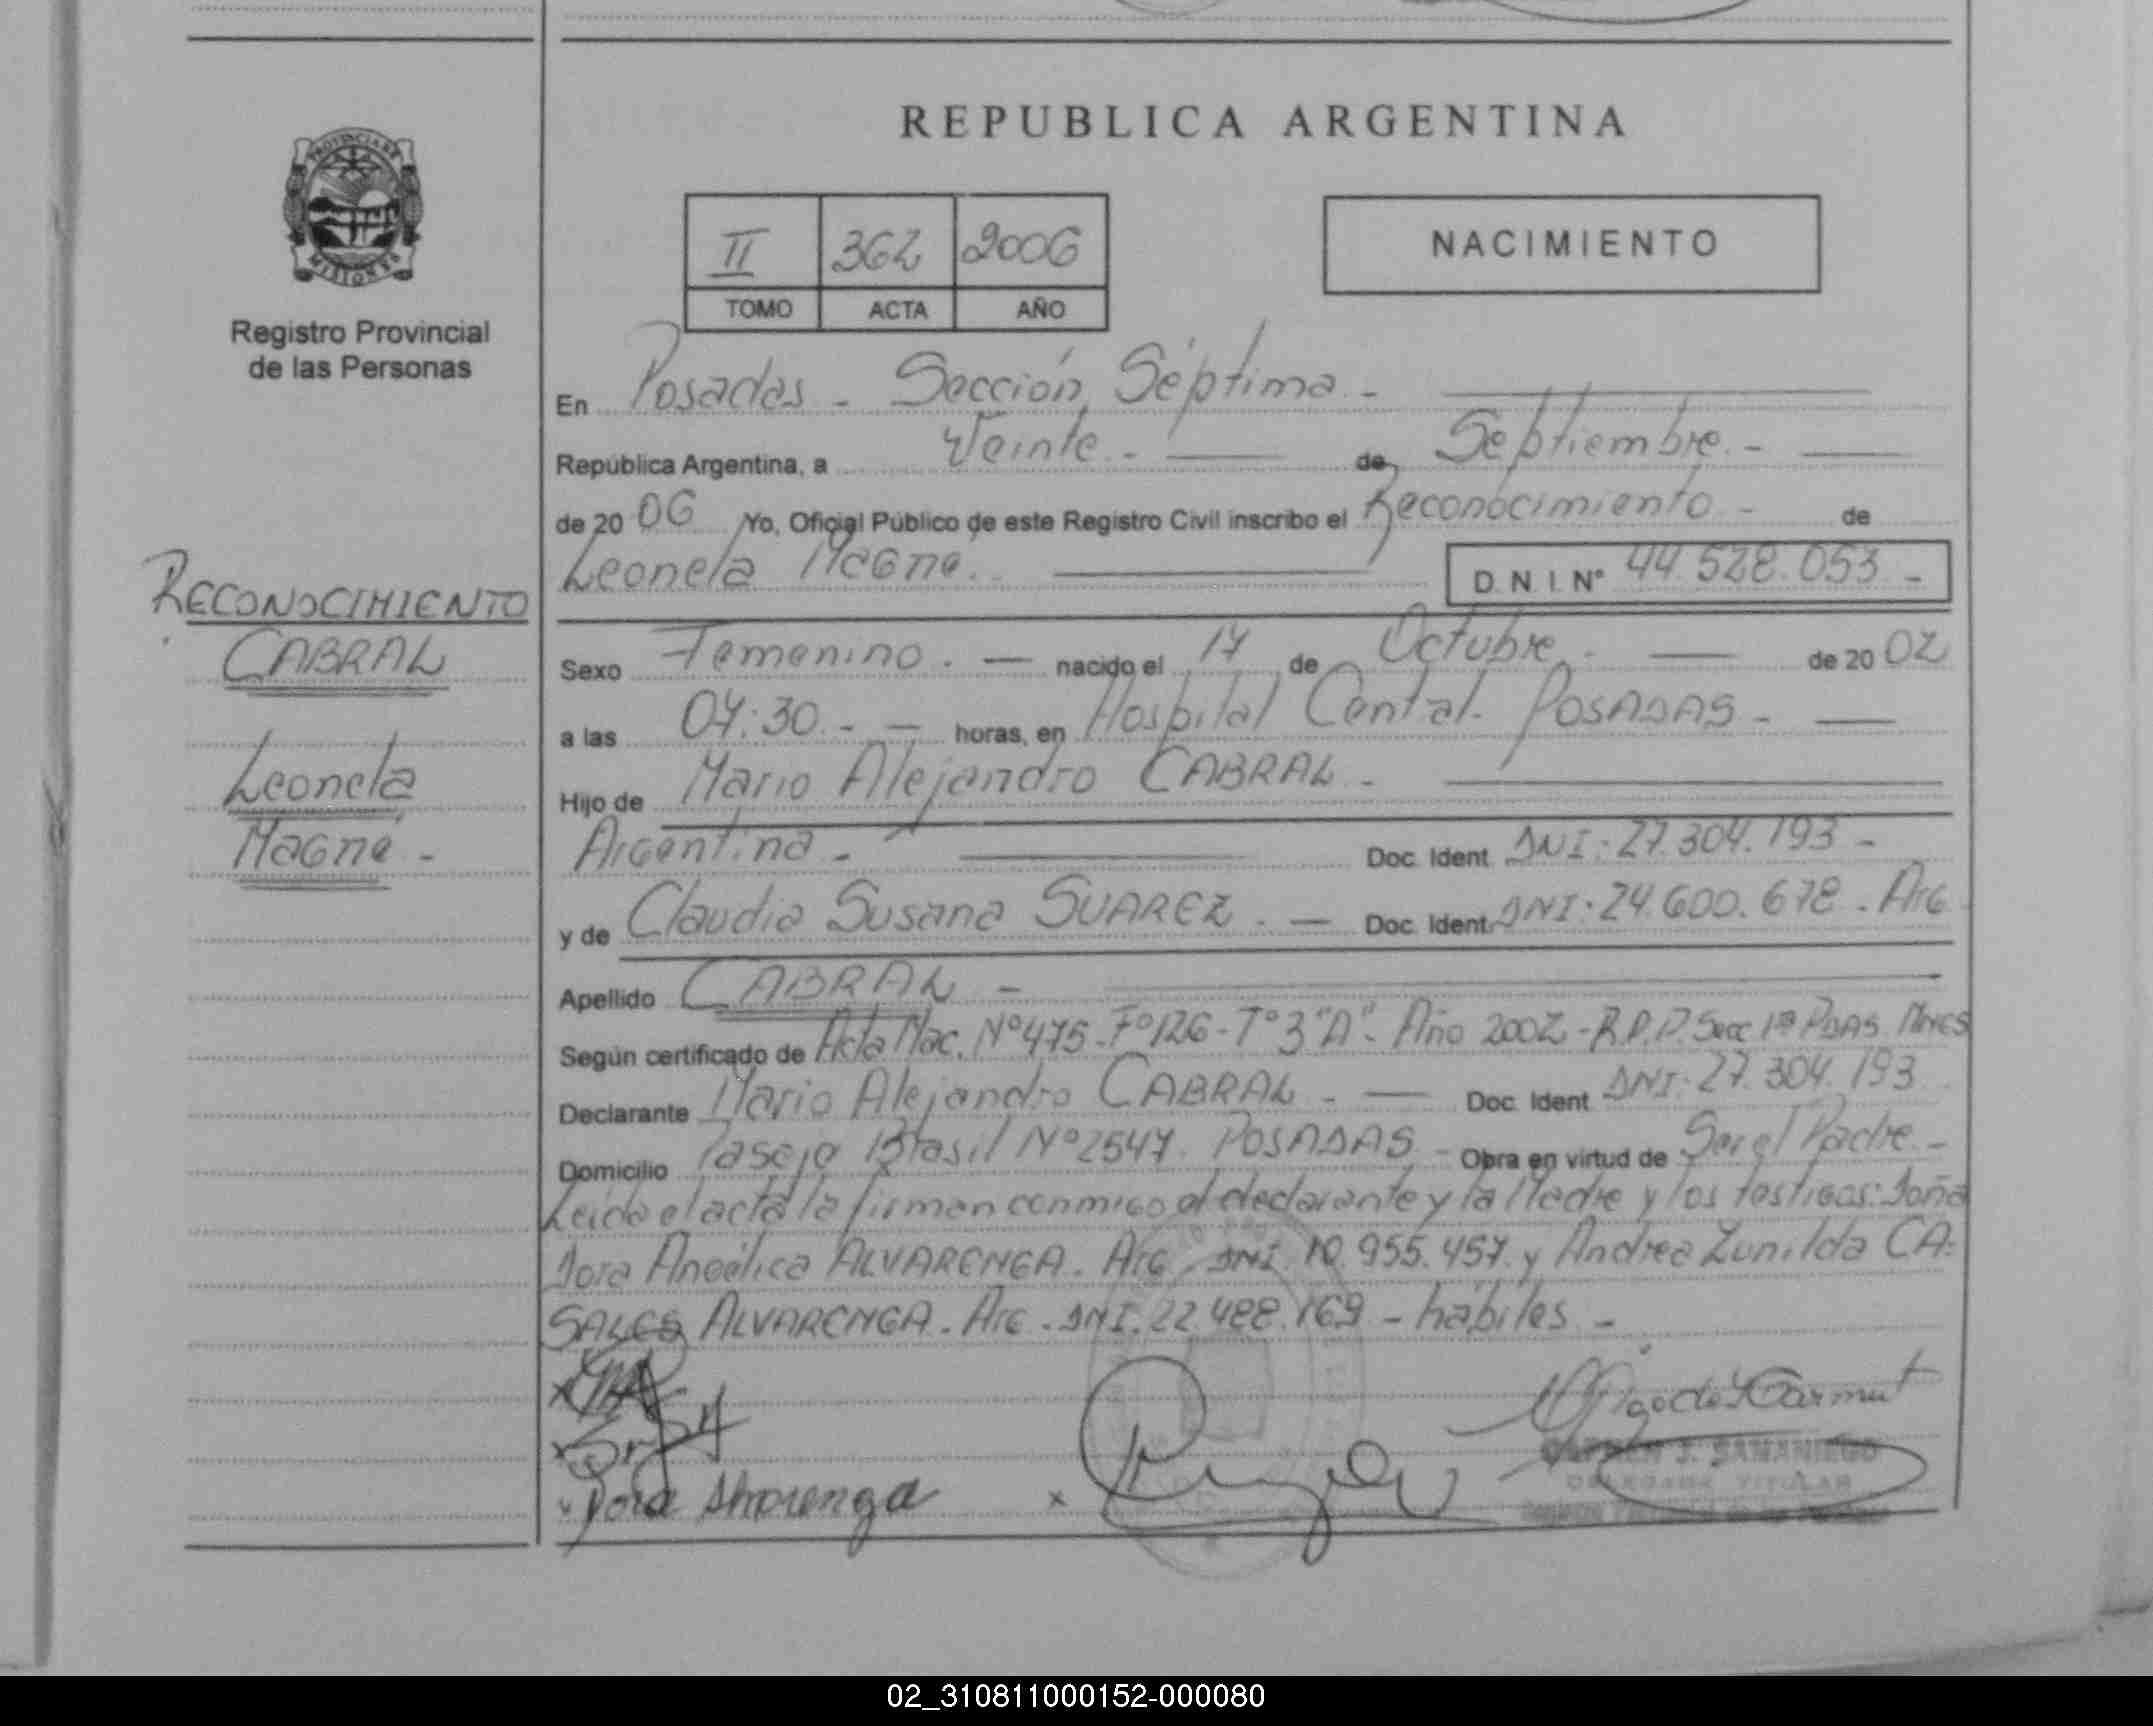 REPUBLICA ARGENTINA
PROVINCIA DE MISIONES
Registro Provincial
de las Personas
II 362 2006
TOMO ACTA AÑO
NACIMIENTO
En Posadas - Sección Séptima -
República Argentina, a Veinte - de Septiembre -
de 2006 Yo, Oficial Público de este Registro Civil inscribo el Reconocimiento - de
Leonela Magne. D.N.I. N° 44.528.053 -
RECONOCIMIENTO
CABRAL
Leonela
Magne -
Sexo Femenino. - nacido el 17 de Octubre - de 2002
a las 04:30 - horas, en Hospital Cental. POSADAS -
Hijo de Mario Alejandro CABRAL -
Argentina - Doc. Ident DNI: 27.304.193 -
y de Claudia Susana SUAREZ - Doc. Ident. DNI: 24.600.678 - Arg
Apellido CABRAL -
Según certificado de Acta Nac. N° 475 - F° 126 - T° 3 "A" - Año 2002 - R.P.P. Secc 1ª PDAS. MNES
Declarante Mario Alejandro CABRAL - Doc. Ident DNI: 27.304.193
Domicilio Pasaje Brasil N° 2547. POSADAS - Obra en virtud de Ser el Padre -
Leida el acta la firman conmigo el declarante y la Madre y los testigos: Doña
Dora Angélica ALVARENGA. Arg. DNI. 10.955.457. y Andrea Zunilda CA-
SALES ALVARENGA. Arg. DNI. 22.488.169 - hábiles -
Dora Alvarenga
CARMEN J. SAMANIEGO
DELEGADA TITULAR
02_310811000152-000080